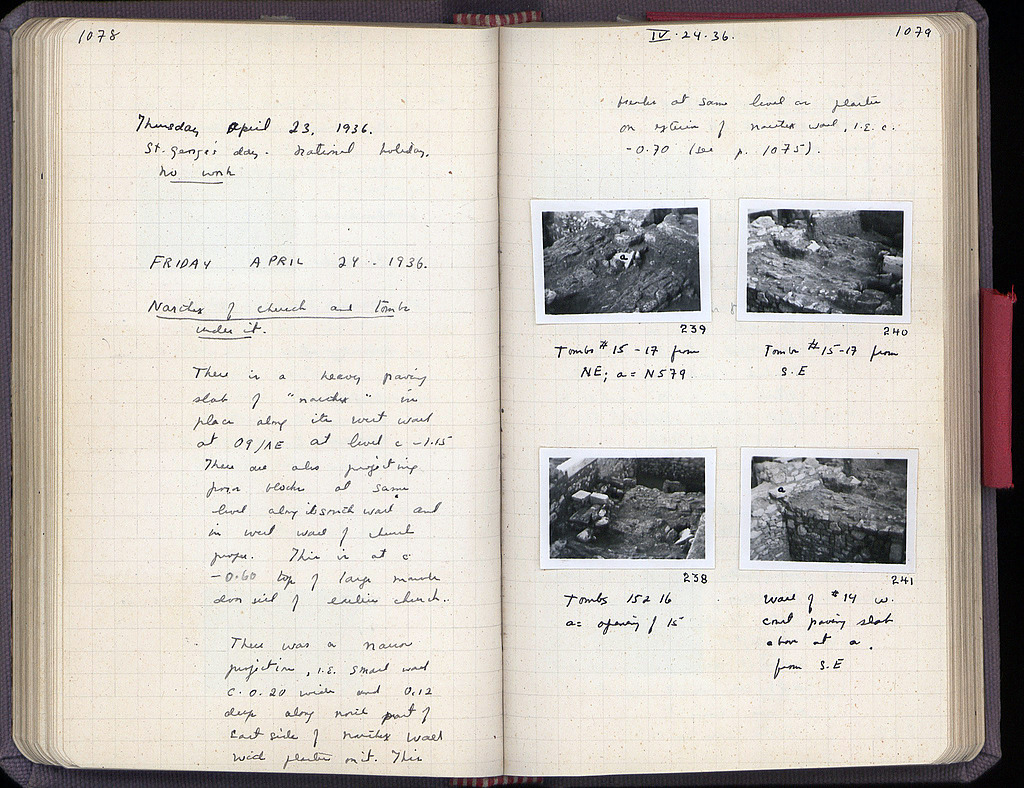 1078
Thursday April 23, 1936.
St. George's day. National holiday.
No work
FRIDAY APRIL 24 - 1936.
Narthex of church and tombs
under it.
There is a heavy paving
slab of "narthex" in
place along its west wall
at 09/AE at level c -1.15
There are also projecting
poros blocks at same
level along its south wall and
in west wall of church
proper. This is at c
-0.60 top of large marble
door sill of earlier church.
There was a narrow
projection, i.e. small wall
c. 0.20 wide and 0.12
deep along north part of
East side of narthex wall
with plaster on it. This
IV.24.36.
1079
at same level as plaster
on exterior of narthex wall, i.e. c.
-0.70 (see p. 1075).
a
239
Tombs #15-17 from
NE; a = N579.
240
Tombs #15-17 from
S.E
238
Tombs 15 & 16
a = opening of 15
a
241
Wall of #14 w.
paving slab
above at a.
from S.E